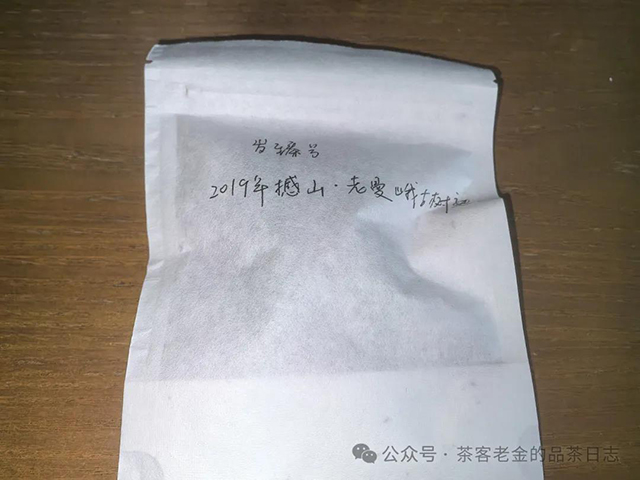 岩茶号
2019年撼山·老曼峨古树
公众号·茶客老金的品茶日志